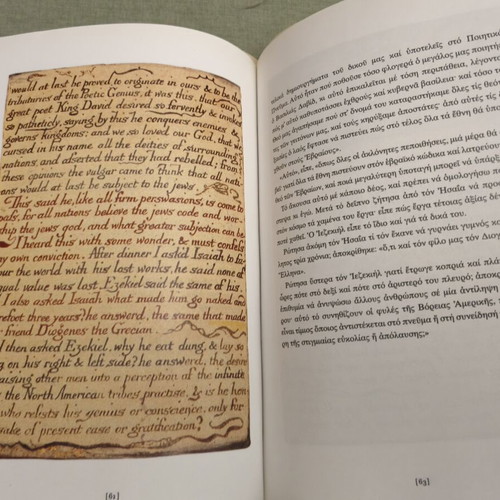 would at last be proved to originate in ours & to be the
tributaries of the Poetic Genius, it was this, that our
great poet King David desired so fervently & invokes
so pathetic'ly, saying by this he conquers enemies &
governs kingdoms; and we so loved our God, that we
cursed in his name all the deities of surrounding
nations, and asserted that they had rebelled; from
these opinions the vulgar came to think that all nati-
ons would at last be subject to the jews.
This said he, like all firm perswasions, is come to
pass, for all nations believe the jews code and wor-
ship the jews god, and what greater subjection can be
I heard this with some wonder, & must confess
my own conviction. After dinner I asked Isaiah to fa-
vour the world with his lost works, he said none of
equal value was lost. Ezekiel said the same of his.
I also asked Isaiah what made him go naked and
barefoot three years? he answerd, the same that made
friend Diogenes the Grecian.
I then asked Ezekiel, why he eat dung, & lay so
long on his right & left side? he answerd, the desire
raising other men into a perception of the infinite
the North American tribes practise, & is he honest
who resists his genius or conscience, only for
sake of present ease or gratification?
[62]
δημιουργήματα τοῦ δικοῦ μας καὶ ὑποτελεῖς στὸ Ποιητικὸ
Αὐτὸ ἦταν ποὺ ποθοῦσε τόσο φλογερὰ ὁ μεγάλος μας ποιητὴς
ὁ Βασιλιὰς Δαβίδ, κι αὐτὸ ἐπικαλεῖται μὲ τόση περιπάθεια, λέγοντας
πὼς μ' αὐτὸ καθυποτάσσει ἐχθροὺς καὶ κυβερνᾶ βασίλεια· καὶ τόσο
Θεό μας ἀγαπήσαμε ποὺ στ' ὄνομά του καταραστήκαμε ὅλες τὶς θεότητες
τῶν γειτόνων μας, καὶ τοὺς κηρύξαμε ἀποστάτες· ἀπὸ αὐτὲς τὶς
ὁ λαὸς ἔφτασε νὰ πιστεύει πὼς στὸ τέλος ὅλα τὰ ἔθνη θὰ
στοὺς Ἑβραίους».
«Αὐτό», εἶπε, «ὅπως ὅλες οἱ ἀκλόνητες πεποιθήσεις, μιὰ μέρα θὰ
γιατὶ ὅλα τὰ ἔθνη πιστεύουν στὸν ἑβραϊκὸ κώδικα καὶ λατρεύουν
τῶν Ἑβραίων, καὶ ποιὰ μεγαλύτερη ὑποταγὴ μπορεῖ νὰ ὑπάρξει;»
Τὸ ἄκουσα αὐτὸ μὲ κάποιο δέος, καὶ πρέπει νὰ ὁμολογήσω
κι ἐγώ. Μετὰ τὸ δεῖπνο ζήτησα ἀπὸ τὸν Ἠσαΐα νὰ
στὸν κόσμο τὰ χαμένα του ἔργα· εἶπε πὼς ἔργα τέτοιας ἀξίας δὲν
ποτὲ χαθεῖ. Ὁ Ἰεζεκιὴλ εἶπε τὸ ἴδιο καὶ γιὰ τὰ δικά του.
Ρώτησα ἀκόμη τὸν Ἠσαΐα τί τὸν ἔκανε νὰ γυρνάει γυμνὸς κα
λητος τρία χρόνια; ἀποκρίθηκε: «ὅ,τι καὶ τὸν φίλο μας τὸν Διογ
Ἕλληνα».
Ρώτησα ὕστερα τὸν Ἰεζεκιὴλ γιατί ἔτρωγε κοπριὰ καὶ πλά
ὥρες πότε στὸ δεξὶ καὶ πότε στὸ ἀριστερό του πλευρό; ἀποκρ
ἐπιθυμία νὰ ἀνυψώσω ἄλλους ἀνθρώπους σὲ μίαν ἀντίληψη
ρου· αὐτὸ τὸ συνηθίζουν οἱ φυλὲς τῆς Βόρειας Ἀμερικῆς,
εἶναι τίμιος ὅποιος ἀντιστέκεται στὸ πνεῦμα ἢ στὴ συνείδησή
τῆς στιγμιαίας εὐκολίας ἢ ἀπόλαυσης;»
[63]